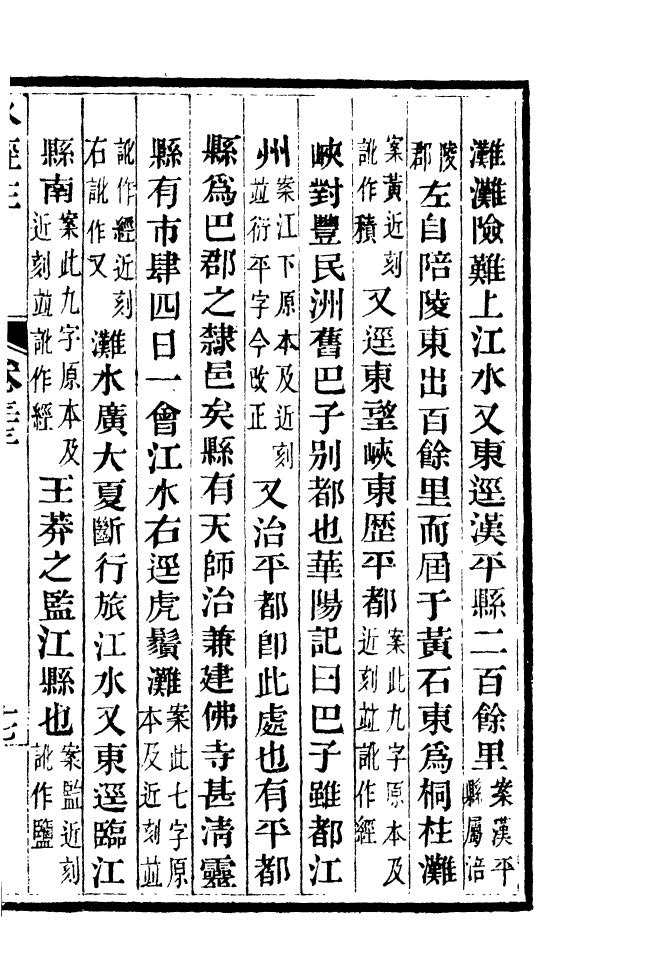 灘灘險難上江水又東逕漢平縣二百餘里案漢平縣屬涪
陵郡左自涪陵東出百餘里而屆于黃石東為桐柱灘
案黃近刻訛作積又逕東望峽東歷平都案此九字原本及近刻竝訛作經
峽對豐民洲舊巴子別都也華陽記曰巴子雖都江
州案江下原本及近刻竝衍平字今改正又治平都卽此處也有平都
縣為巴郡之隸邑矣縣有天師治兼建佛寺甚清靈
縣有市肆四日一會江水右逕虎鬚灘案此七字原本及近刻竝
訛作經近刻右訛作又灘水廣大夏斷行旅江水又東逕臨江
縣南案此九字原本及近刻竝訛作經王莽之監江縣也案監近刻訛作鹽
水經注
卷三十三
十七